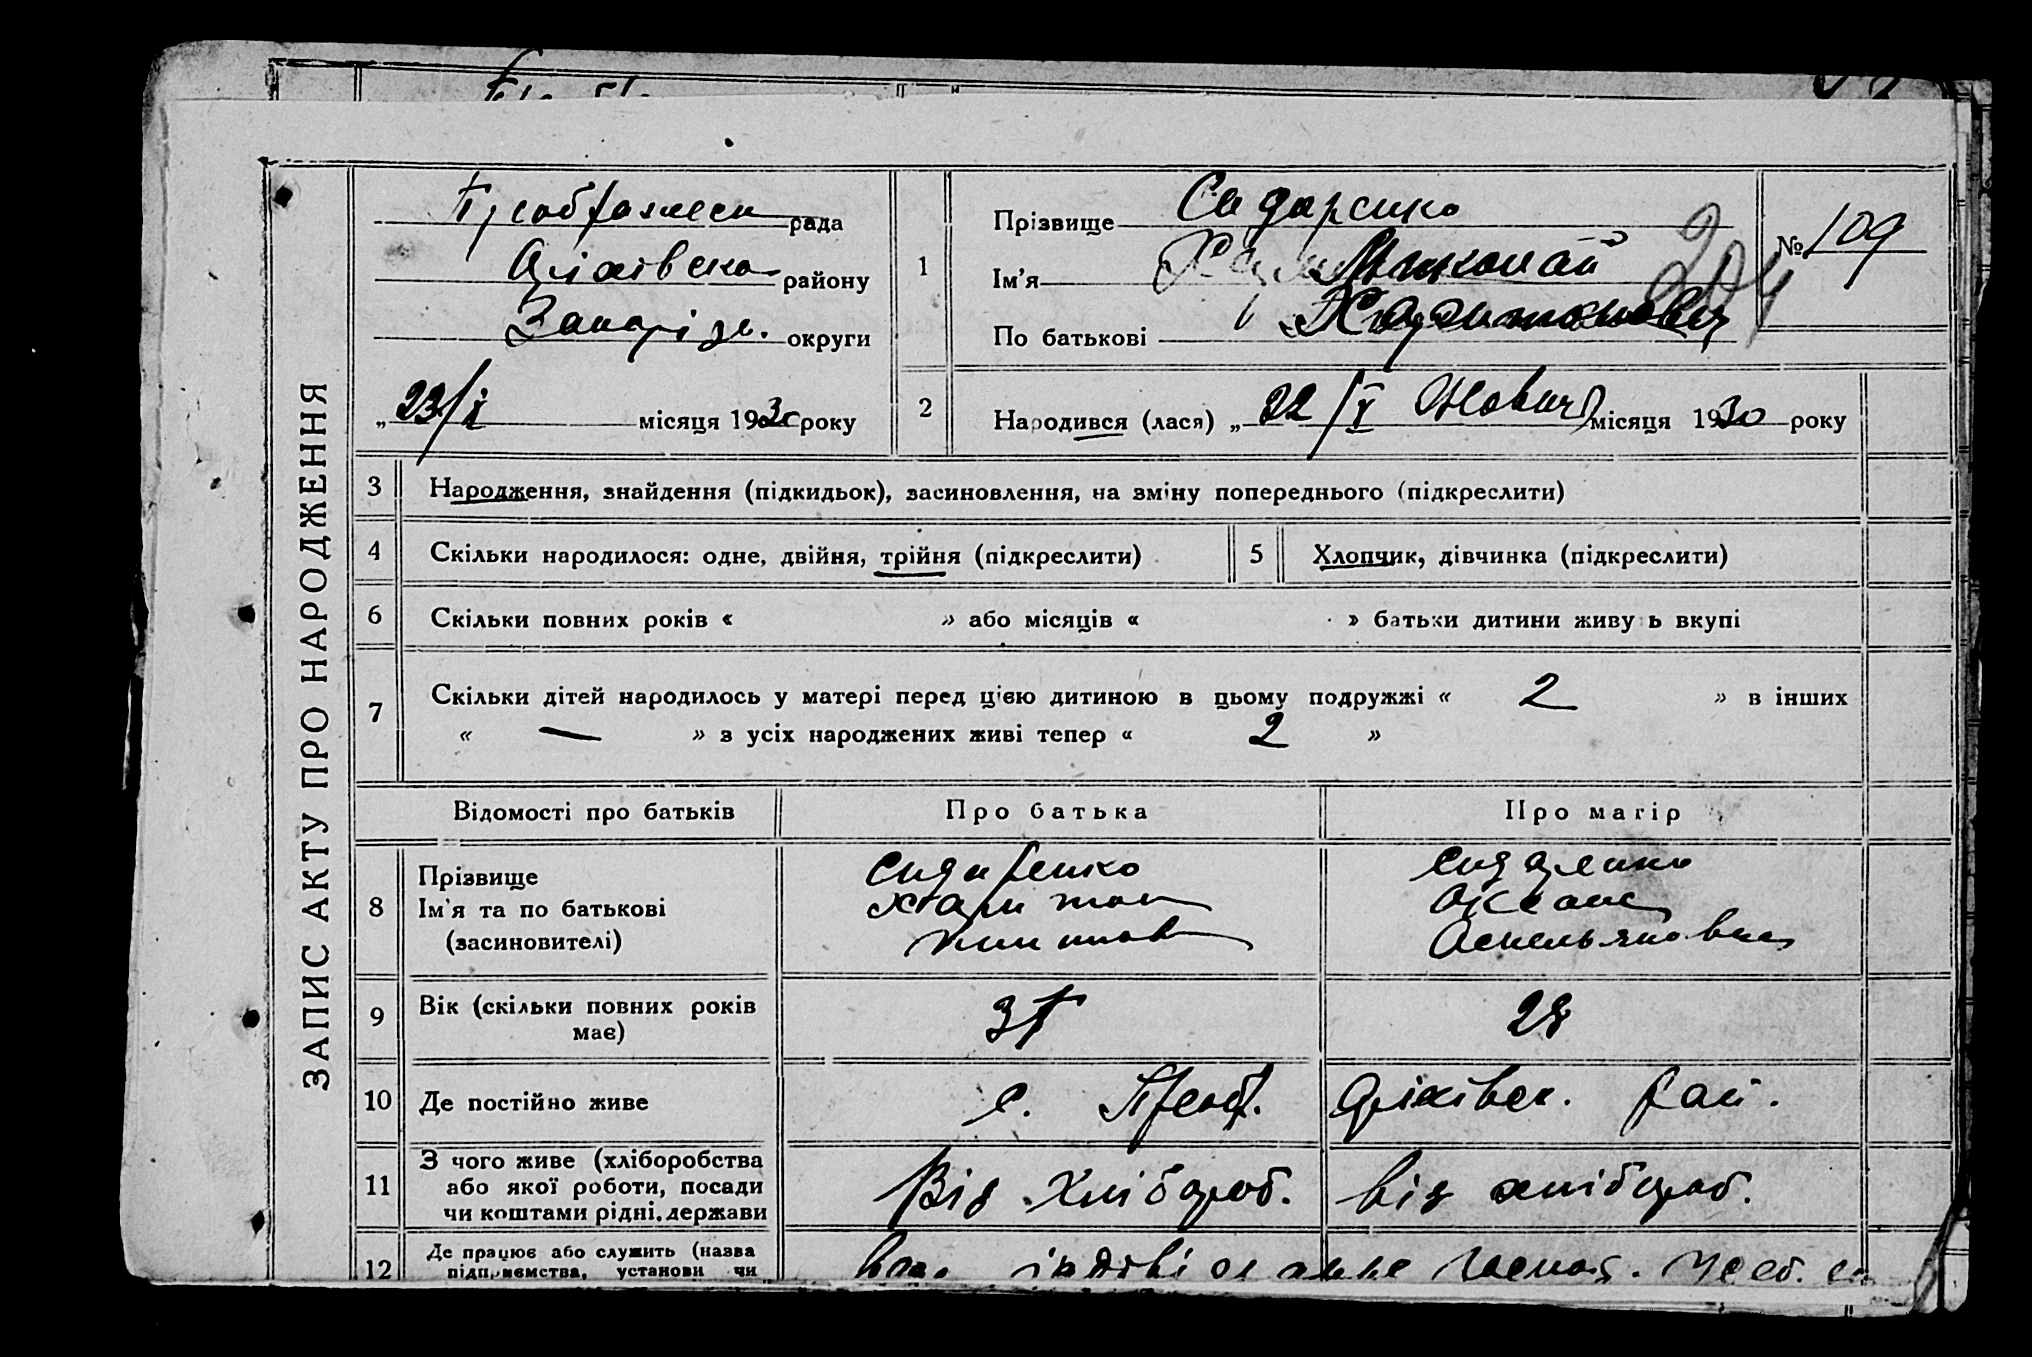 ЗАПИС АКТУ ПРО НАРОДЖЕННЯ
рада
Оріхівська району
Запоріж. округи
„ 23/X місяця 1930 року
1
Прізвище Сидаренко
Ім'я Миколай
По батькові Харитонович
№ 109
204
2
Народився (лася) „ 22/X Жовтня місяця 1930 року
3 Народження, знайдення (підкидьок), засиновлення, на зміну попереднього (підкреслити)
4 Скільки народилося: одне, двійня, трійня (підкреслити)
5 Хлопчик, дівчинка (підкреслити)
6 Скільки повних років « » або місяців « » батьки дитини живуть вкупі
7 Скільки дітей народилось у матері перед цією дитиною в цьому подружжі « 2 » в інших
« — » з усіх народжених живі тепер « 2 »
Відомості про батьків Про батька Про матір
8 Прізвище
Ім'я та по батькові
(засиновителі)
Сидаренко
Харитон
Сидаренко
Оксана
9 Вік (скільки повних років
має)
28
10 Де постійно живе
с. Преоб. Оріхівськ. рай.
11 З чого живе (хліборобства
або якої роботи, посади
чи коштами рідні, держави
Від Хлібороб. від хлібороб.
12 Де працює або служить (назва
підприємства, установи чи